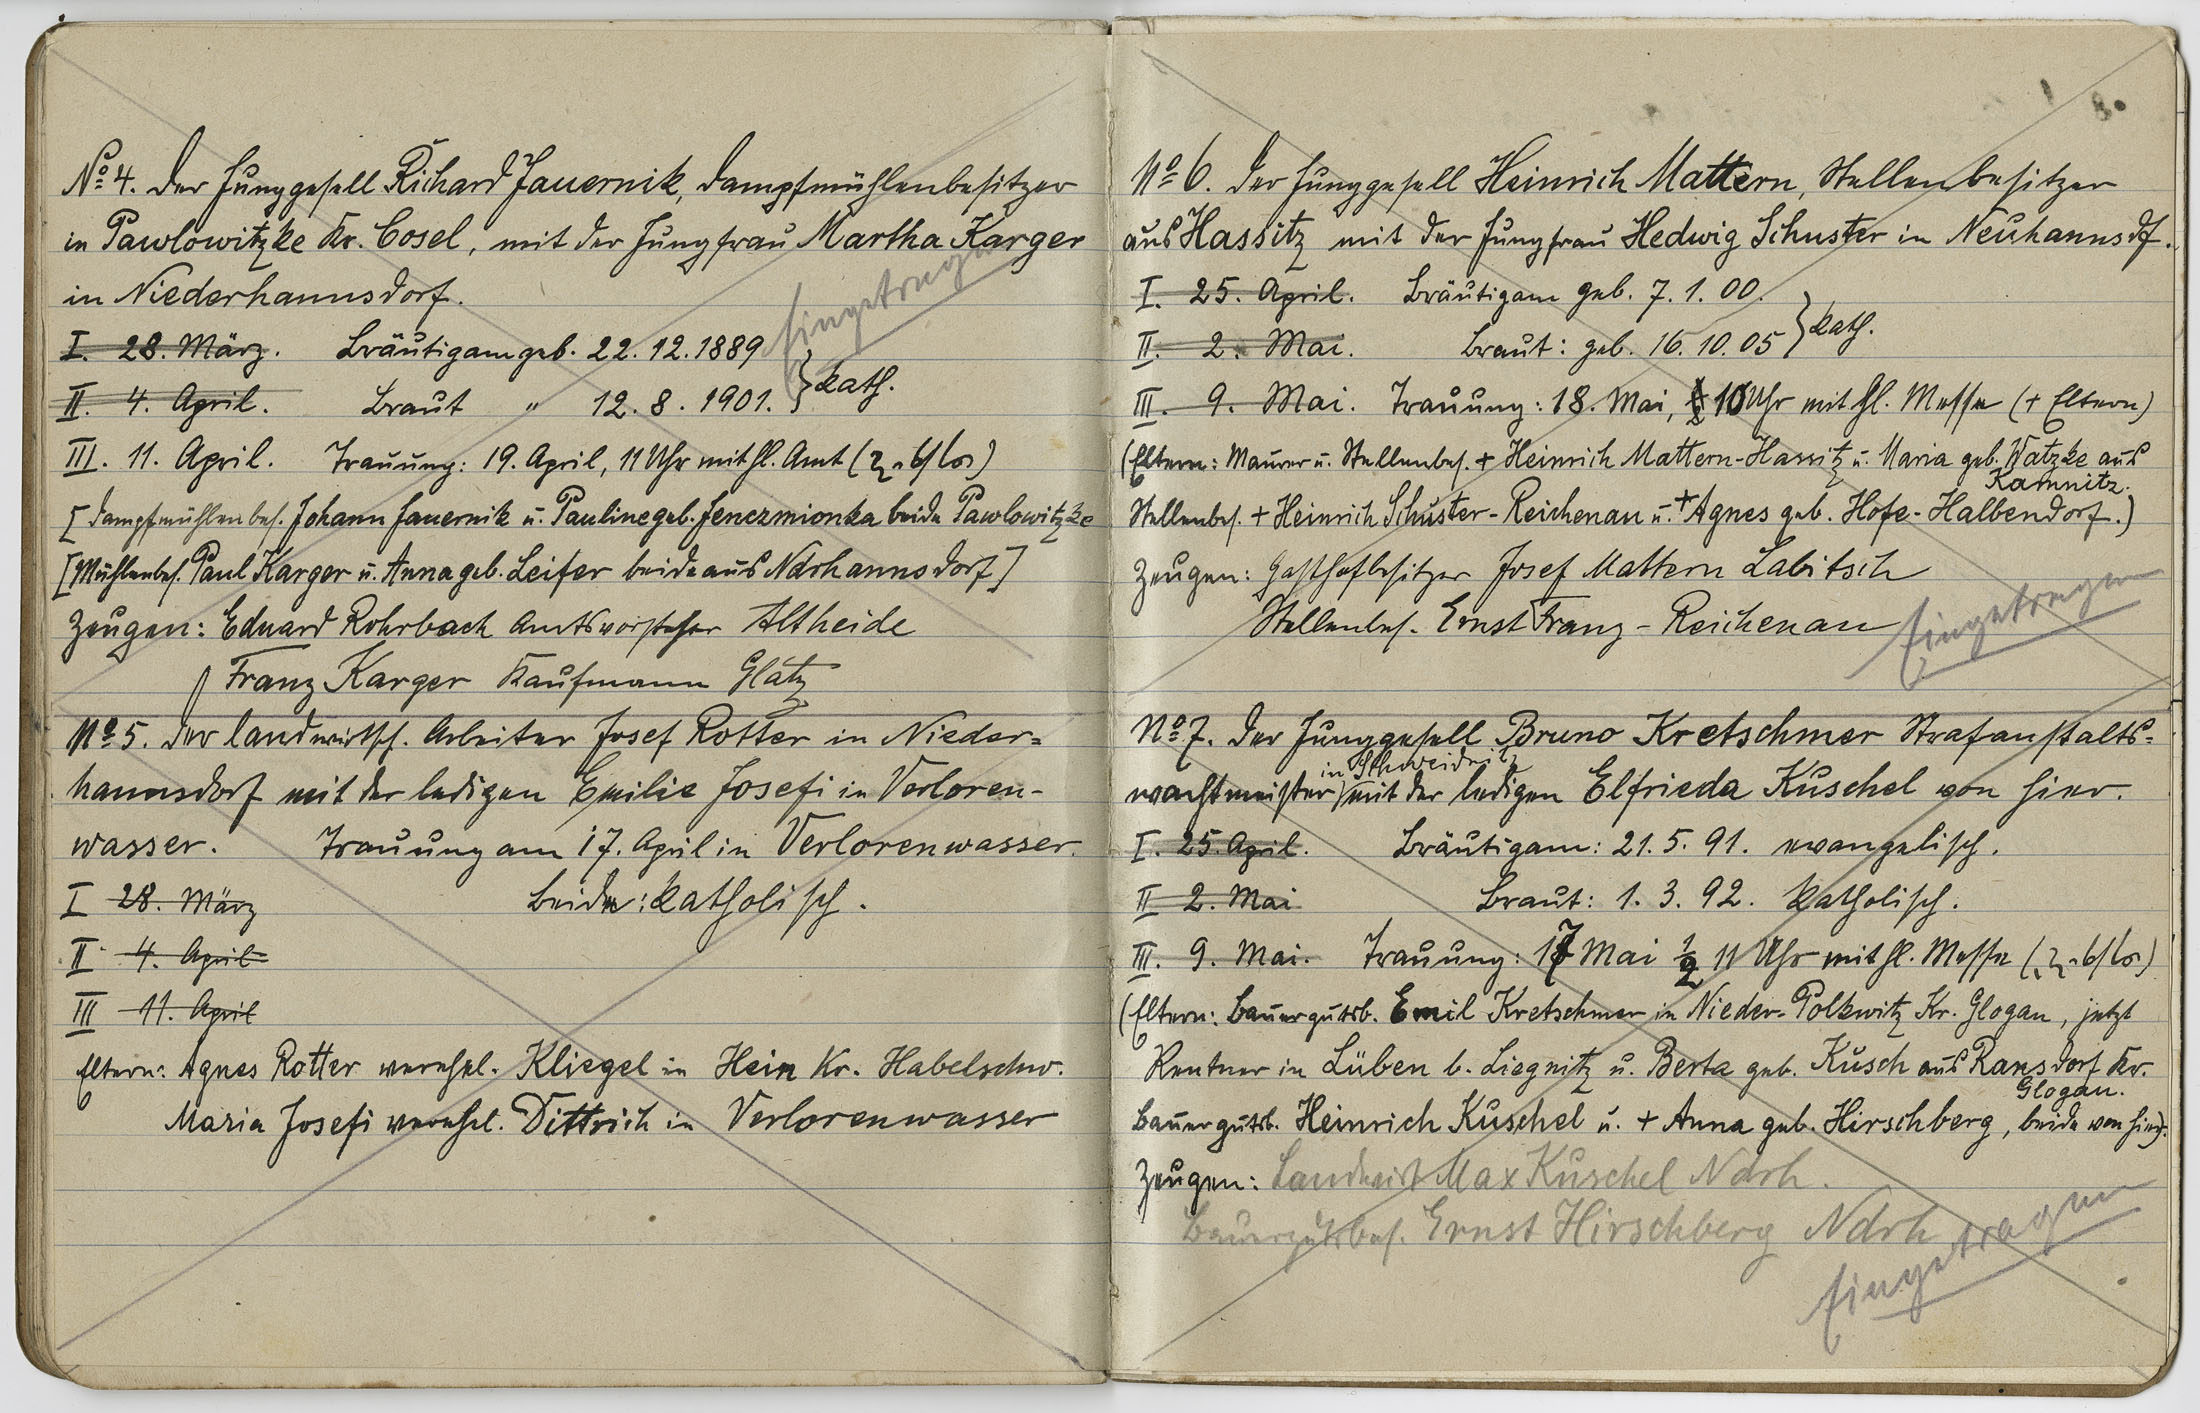 No 4. Der Junggesell Richard Jauernik, Dampfmühlenbesitzer
in Pawlowitzke Kr. Cosel, mit der Jungfrau Martha Karger
in Niederhannsdorf.
Eingetragen
I. 28. März. Bräutigam geb. 22.12.1889
II. 4. April. Braut " 12.8.1901. } kath.
III. 11. April. Trauung: 19. April, 11 Uhr mit hl. Amt
[Dampfmühlenbes. Johann Jauernik u. Pauline geb. Jenczmionka beide Pawlowitzke
[Mühlenbes. Paul Karger u. Anna geb. Leifer beide aus Ndrhannsdorf]
Zeugen: Eduard Rohrbach Amtsvorsteher Altheide
Franz Karger Kaufmann Glatz
No 5. Der landwirtsch. Arbeiter Josef Rotter in Nieder=
hannsdorf mit der ledigen Emilie Josefi in Verloren-
wasser. Trauung am 17. April in Verlorenwasser.
I 28. März beide: katholisch.
II 4. April
III 11. April
Eltern: Agnes Rotter verehel. Kliegel in Hein Kr. Habelschw.
Maria Josefi verehel. Dittrich in Verlorenwasser
No 6. Der Junggesell Heinrich Mattern, Stellenbesitzer
aus Hassitz mit der Jungfrau Hedwig Schuster in Neuhannsdf.
I. 25. April. Bräutigam geb. 7.1.00.
II. 2. Mai. Braut: geb. 16.10.05 } kath.
III. 9. Mai. Trauung: 18. Mai, 10 Uhr mit hl. Messe (+ Eltern)
(Eltern: Maurer u. Stellenbes. + Heinrich Mattern-Hassitz u. Maria geb. Watzke aus
Kamnitz.
Stellenbes. + Heinrich Schuster-Reichenau u. + Agnes geb. Hofe-Halbendorf.)
Zeugen: Gasthofbesitzer Josef Mattern Labitsch
Stellenbes. Ernst Franz-Reichenau
Eingetragen
No 7. Der Junggesell Bruno Kretschmer Strafanstalts=
in Schweidnitz
wachtmeister mit der ledigen Elfrieda Kuschel von hier.
I. 25. April. Bräutigam: 21.5.91. evangelisch.
II 2. Mai Braut: 1.3.92. katholisch.
III. 9. Mai. Trauung: 17 Mai ½ 11 Uhr mit hl. Messe
(Eltern: Bauergutsb. Emil Kretschmer in Nieder-Polkwitz Kr. Glogau, jetzt
Rentner in Lüben b. Liegnitz u. Berta geb. Kusch aus Ransdorf Kr.
Glogau.
Bauergutsb. Heinrich Kuschel u. + Anna geb. Hirschberg, beide von hier).
Zeugen: Landwirt Max Kuschel Ndrh.
Bauergutsbes. Ernst Hirschberg Ndrh
Eingetragen